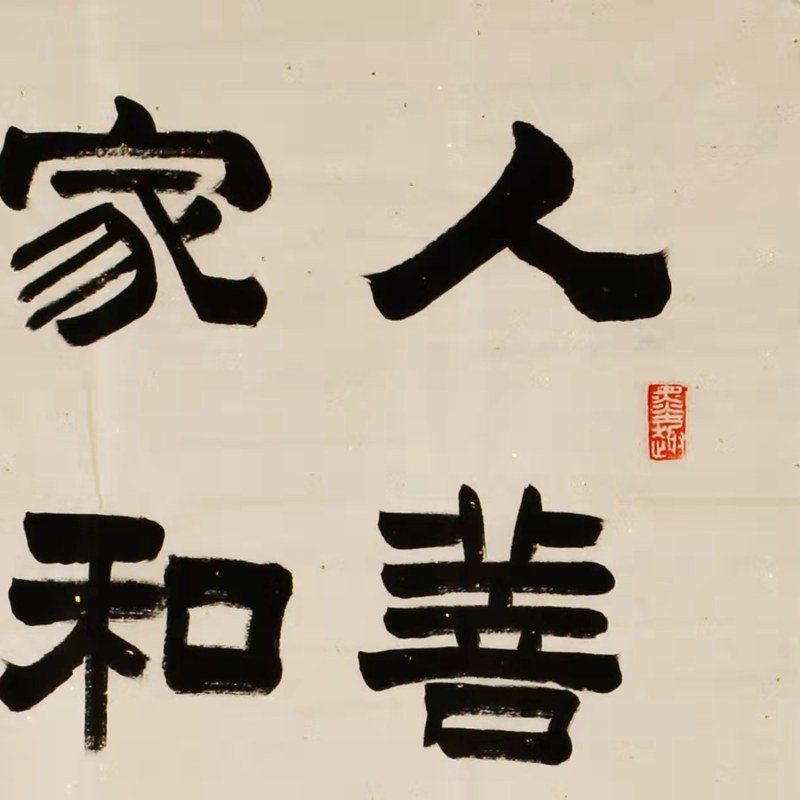 人善
家和